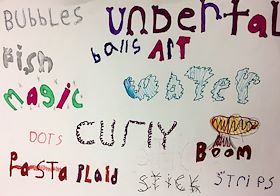 BUBBLES UNDERTAL
balls ART
FisH
magic water
DOTS CURLY
BOOM
PaSTA PlaiD STICK STRIPES